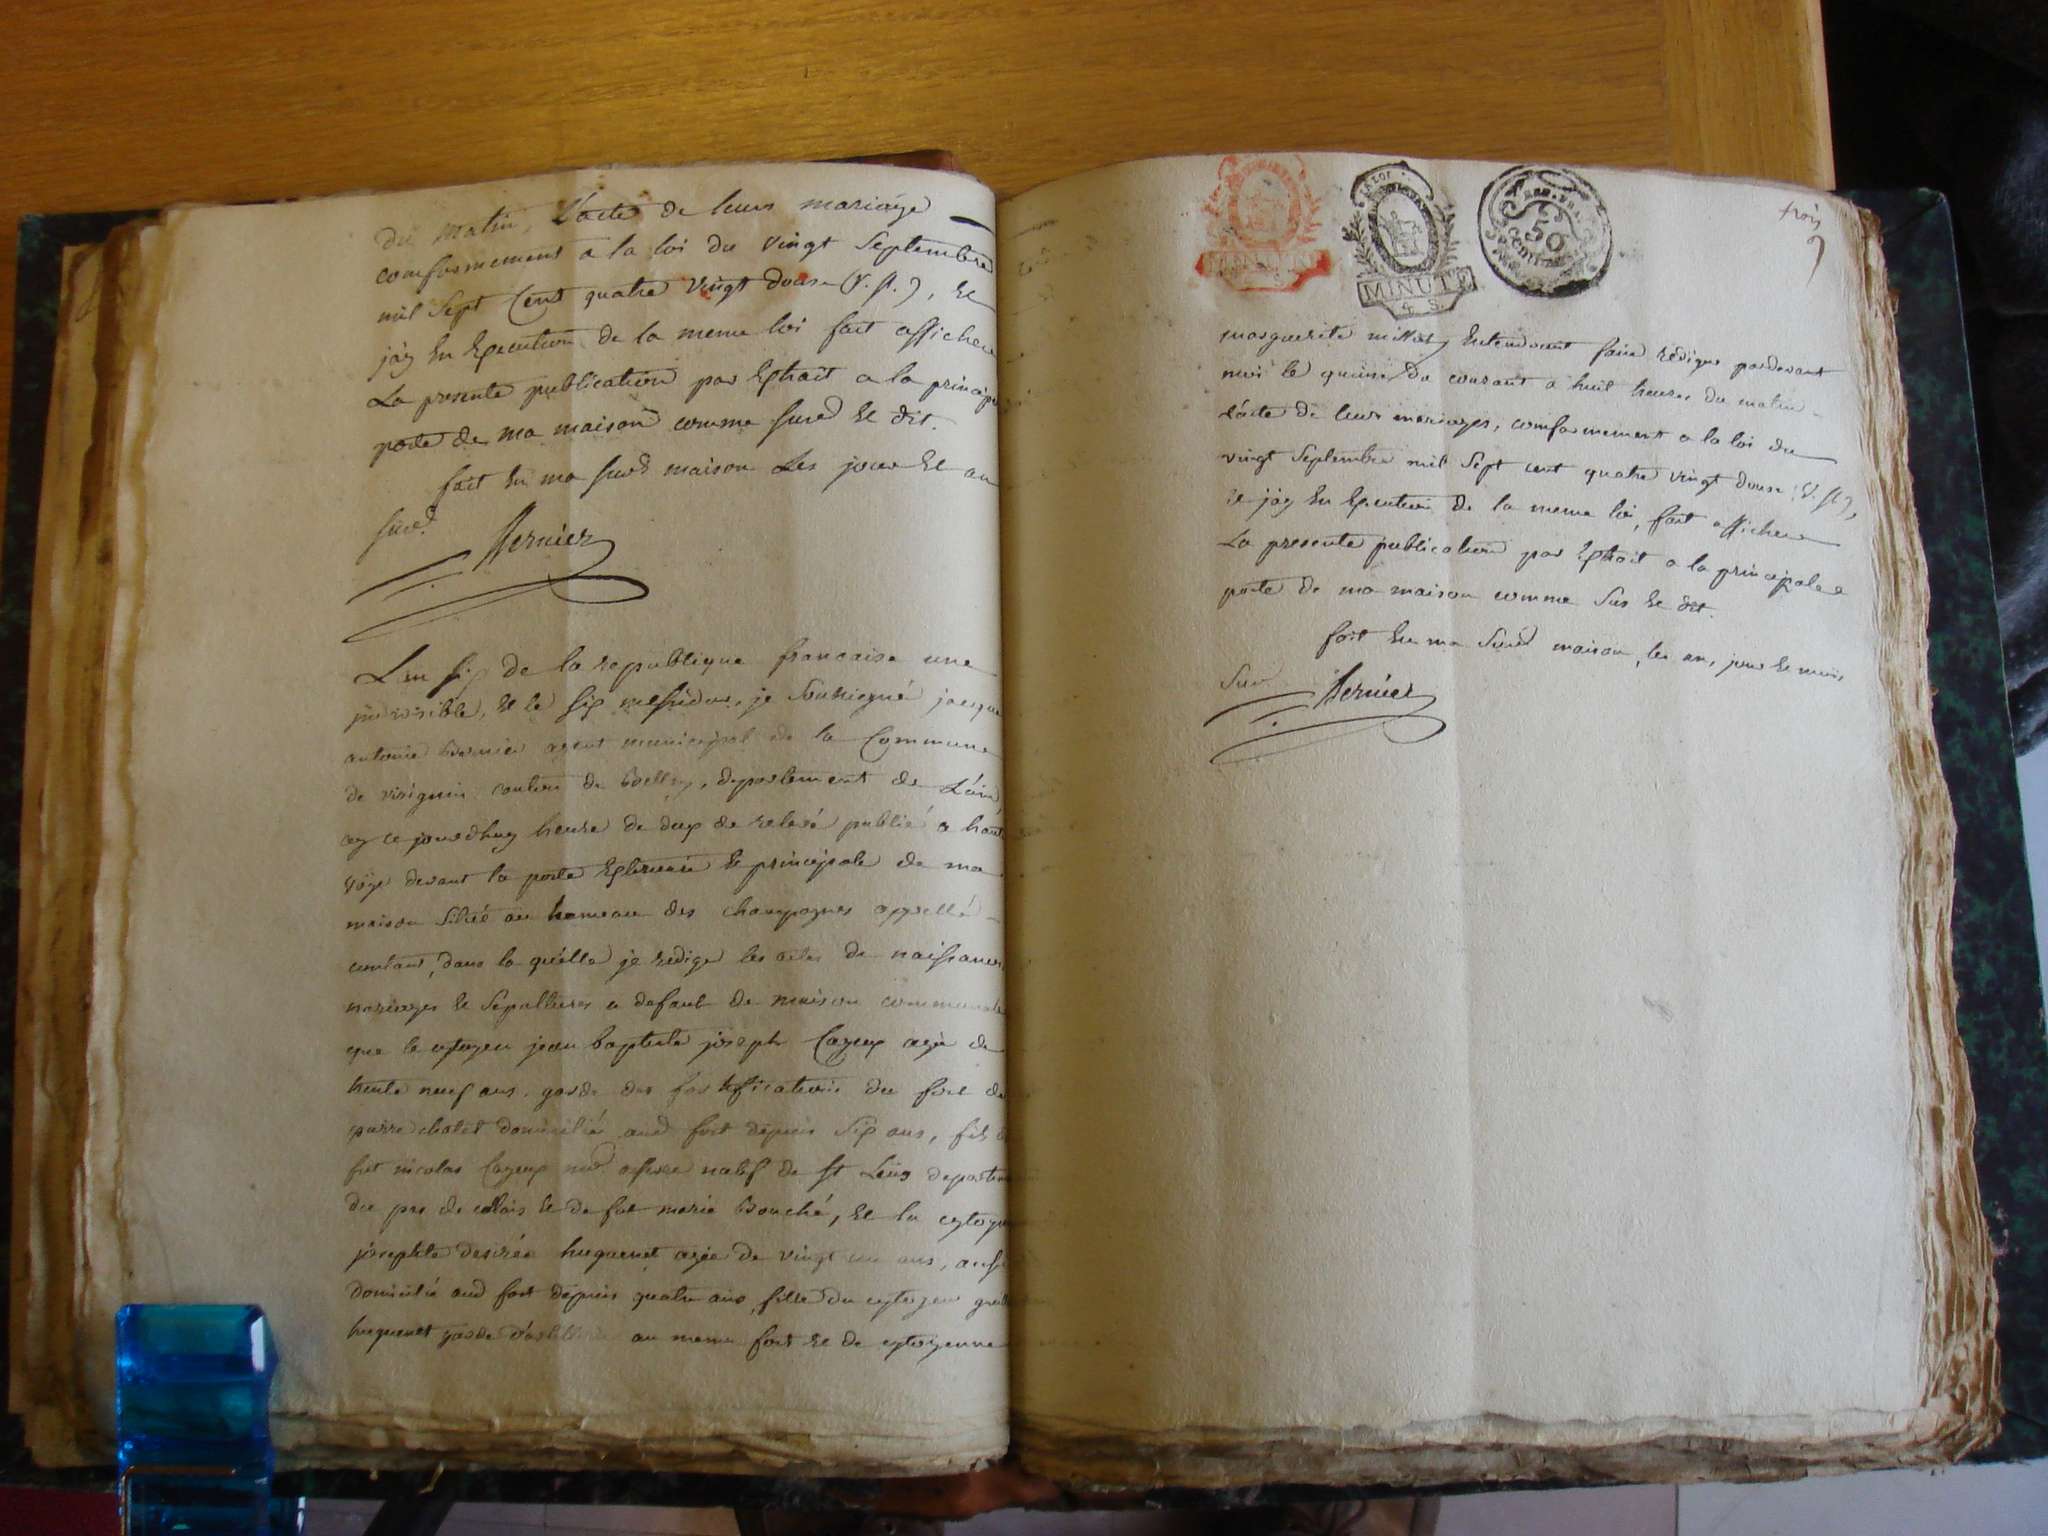 du matin, L'acte de leurs mariage
conformement a la loi du vingt Septembre
mil Sept Cent quatre vingt douze (V. St.), Et
j'ay En Execution de la meme loi fait afficher
La presente publication par Extrait a la principa
porte de ma maison comme Sured Et dit.
fait En ma Sured maison Les jour Et an
Sured. Bernier
L'an Six de la republique francaise une
jndivisible, Et le Six messidor, je Soussigné jacque
antoine Bernier agent municipal de la Commune
de virignin canton de Belley, departement de L'ain,
ay ce jourdhuy heure de deux de relevé publié a haut
voix devant la porte Exterieure Et principale de ma
maison Situé au hameau des champagnes appellé
dans la quélle je redige les actes de naissances
mariages Et Sepultures a defaut de maison communale
que le cytoyen jean baptiste joseph Cayeux agé de
trente neuf ans, garde des fortifications du fort de
pierre chatel domicilié aud fort depuis Six ans, fils d
fut nicolas Cayeux natif de St departem
du pas de calais Et de fut marie Bouché, Et la cytoye
josephte desirée huguenet agée de vingt un ans, aussi
domicilié aud fort depuis quatre ans, fille du cytoyen
huguenet garde d'artillerie au meme fort Et de cytoyenne
trois
LA LOI
MINUTE
4 S.
50
CENT
marguerite millet, Entendant faire rédiger pardevant
moi le quinze du courant a huit heures du matin
l'acte de leurs mariages, conformement a la loi du
vingt Septembre mil Sept cent quatre vingt douze (V. St.),
Et j'ay En Execution de la meme loi, fait afficher
La presente publication par Extrait a la principale
porte de ma maison comme Sus Et dit.
fait En ma Sured maison, les an, jour Et mois
Sured Bernier